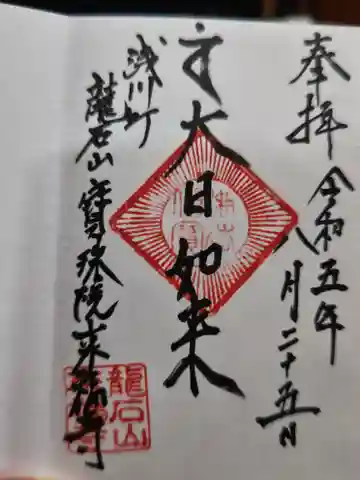 奉拝
令和五年
八月二十五日
大日如来
浅川町
龍石山
寳珠院
来福寺
龍石山